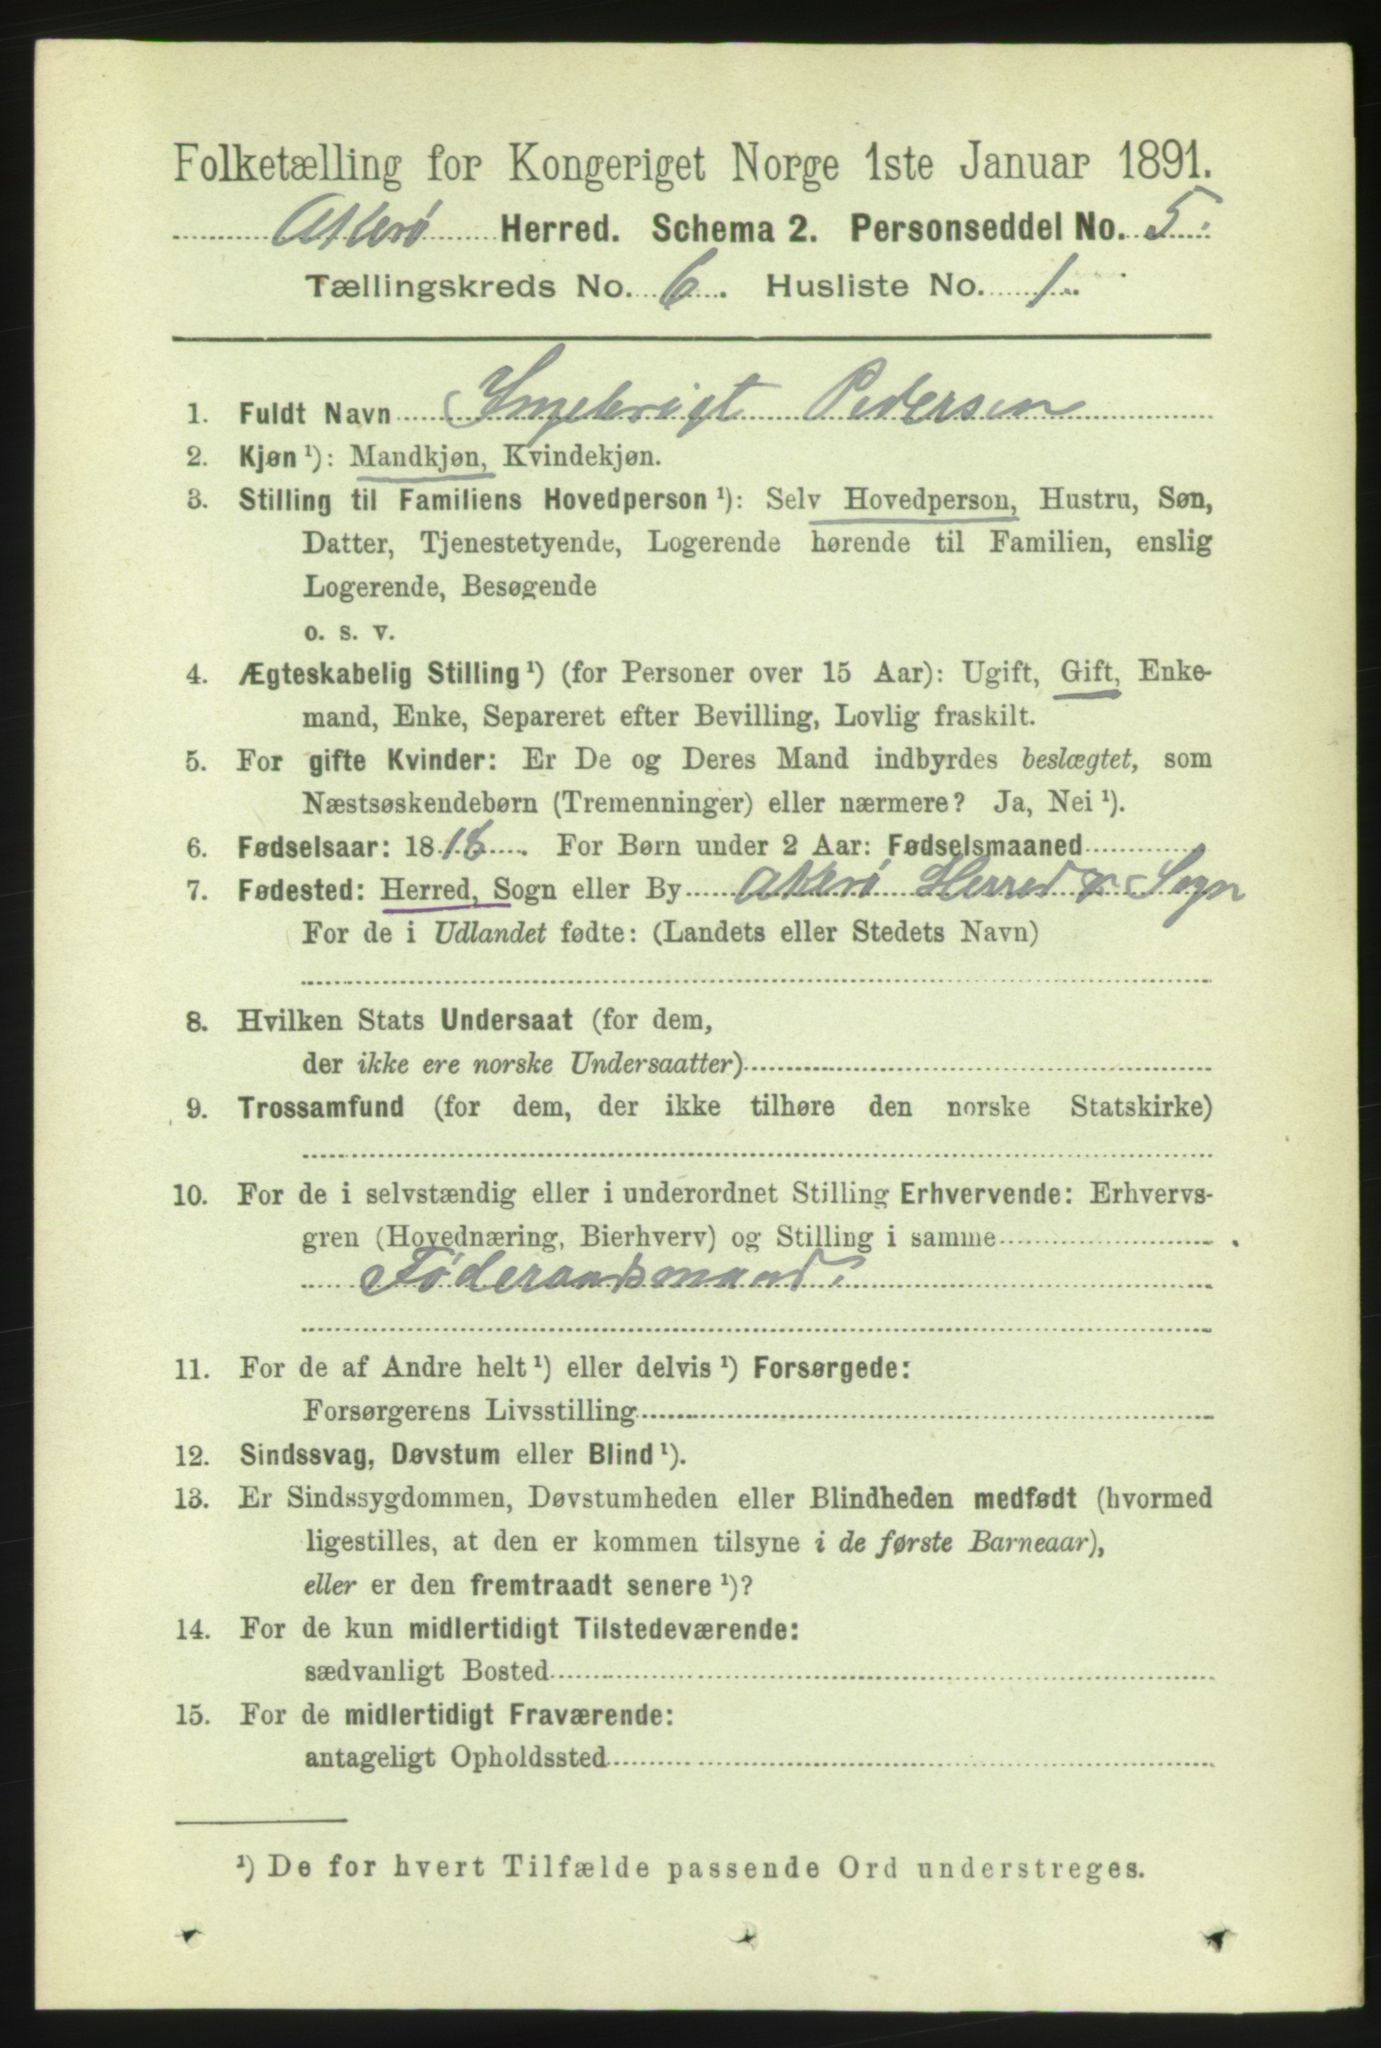 Folketælling for Kongeriget Norge 1ste Januar 1891.
Akerø Herred. Schema 2. Personseddel No. 5.
Tællingskreds No. 6. Husliste No. 1.
1. Fuldt Navn Ingebrigt Pedersen
2. Kjøn ¹): Mandkjøn, Kvindekjøn.
3. Stilling til Familiens Hovedperson ¹): Selv Hovedperson, Hustru, Søn,
Datter, Tjenestetyende, Logerende hørende til Familien, enslig
Logerende, Besøgende
o. s. v.
4. Ægteskabelig Stilling ¹) (for Personer over 15 Aar): Ugift, Gift, Enke-
mand, Enke, Separeret efter Bevilling, Lovlig fraskilt.
5. For gifte Kvinder: Er De og Deres Mand indbyrdes beslægtet, som
Næstsøskendebørn (Tremenninger) eller nærmere? Ja, Nei ¹).
6. Fødselsaar: 1818. For Børn under 2 Aar: Fødselsmaaned
7. Fødested: Herred, Sogn eller By Akerø Herred & Sogn
For de i Udlandet fødte: (Landets eller Stedets Navn)
8. Hvilken Stats Undersaat (for dem,
der ikke ere norske Undersaatter)
9. Trossamfund (for dem, der ikke tilhøre den norske Statskirke)
10. For de i selvstændig eller i underordnet Stilling Erhvervende: Erhvervs-
gren (Hovednæring, Bierhverv) og Stilling i samme
Føderaadsmand.
11. For de af Andre helt ¹) eller delvis ¹) Forsørgede:
Forsørgerens Livsstilling
12. Sindssvag, Døvstum eller Blind ¹).
13. Er Sindssygdommen, Døvstumheden eller Blindheden medfødt (hvormed
ligestilles, at den er kommen tilsyne i de første Barneaar),
eller er den fremtraadt senere ¹)?
14. For de kun midlertidigt Tilstedeværende:
sædvanligt Bosted
15. For de midlertidigt Fraværende:
antageligt Opholdssted
¹) De for hvert Tilfælde passende Ord understreges.